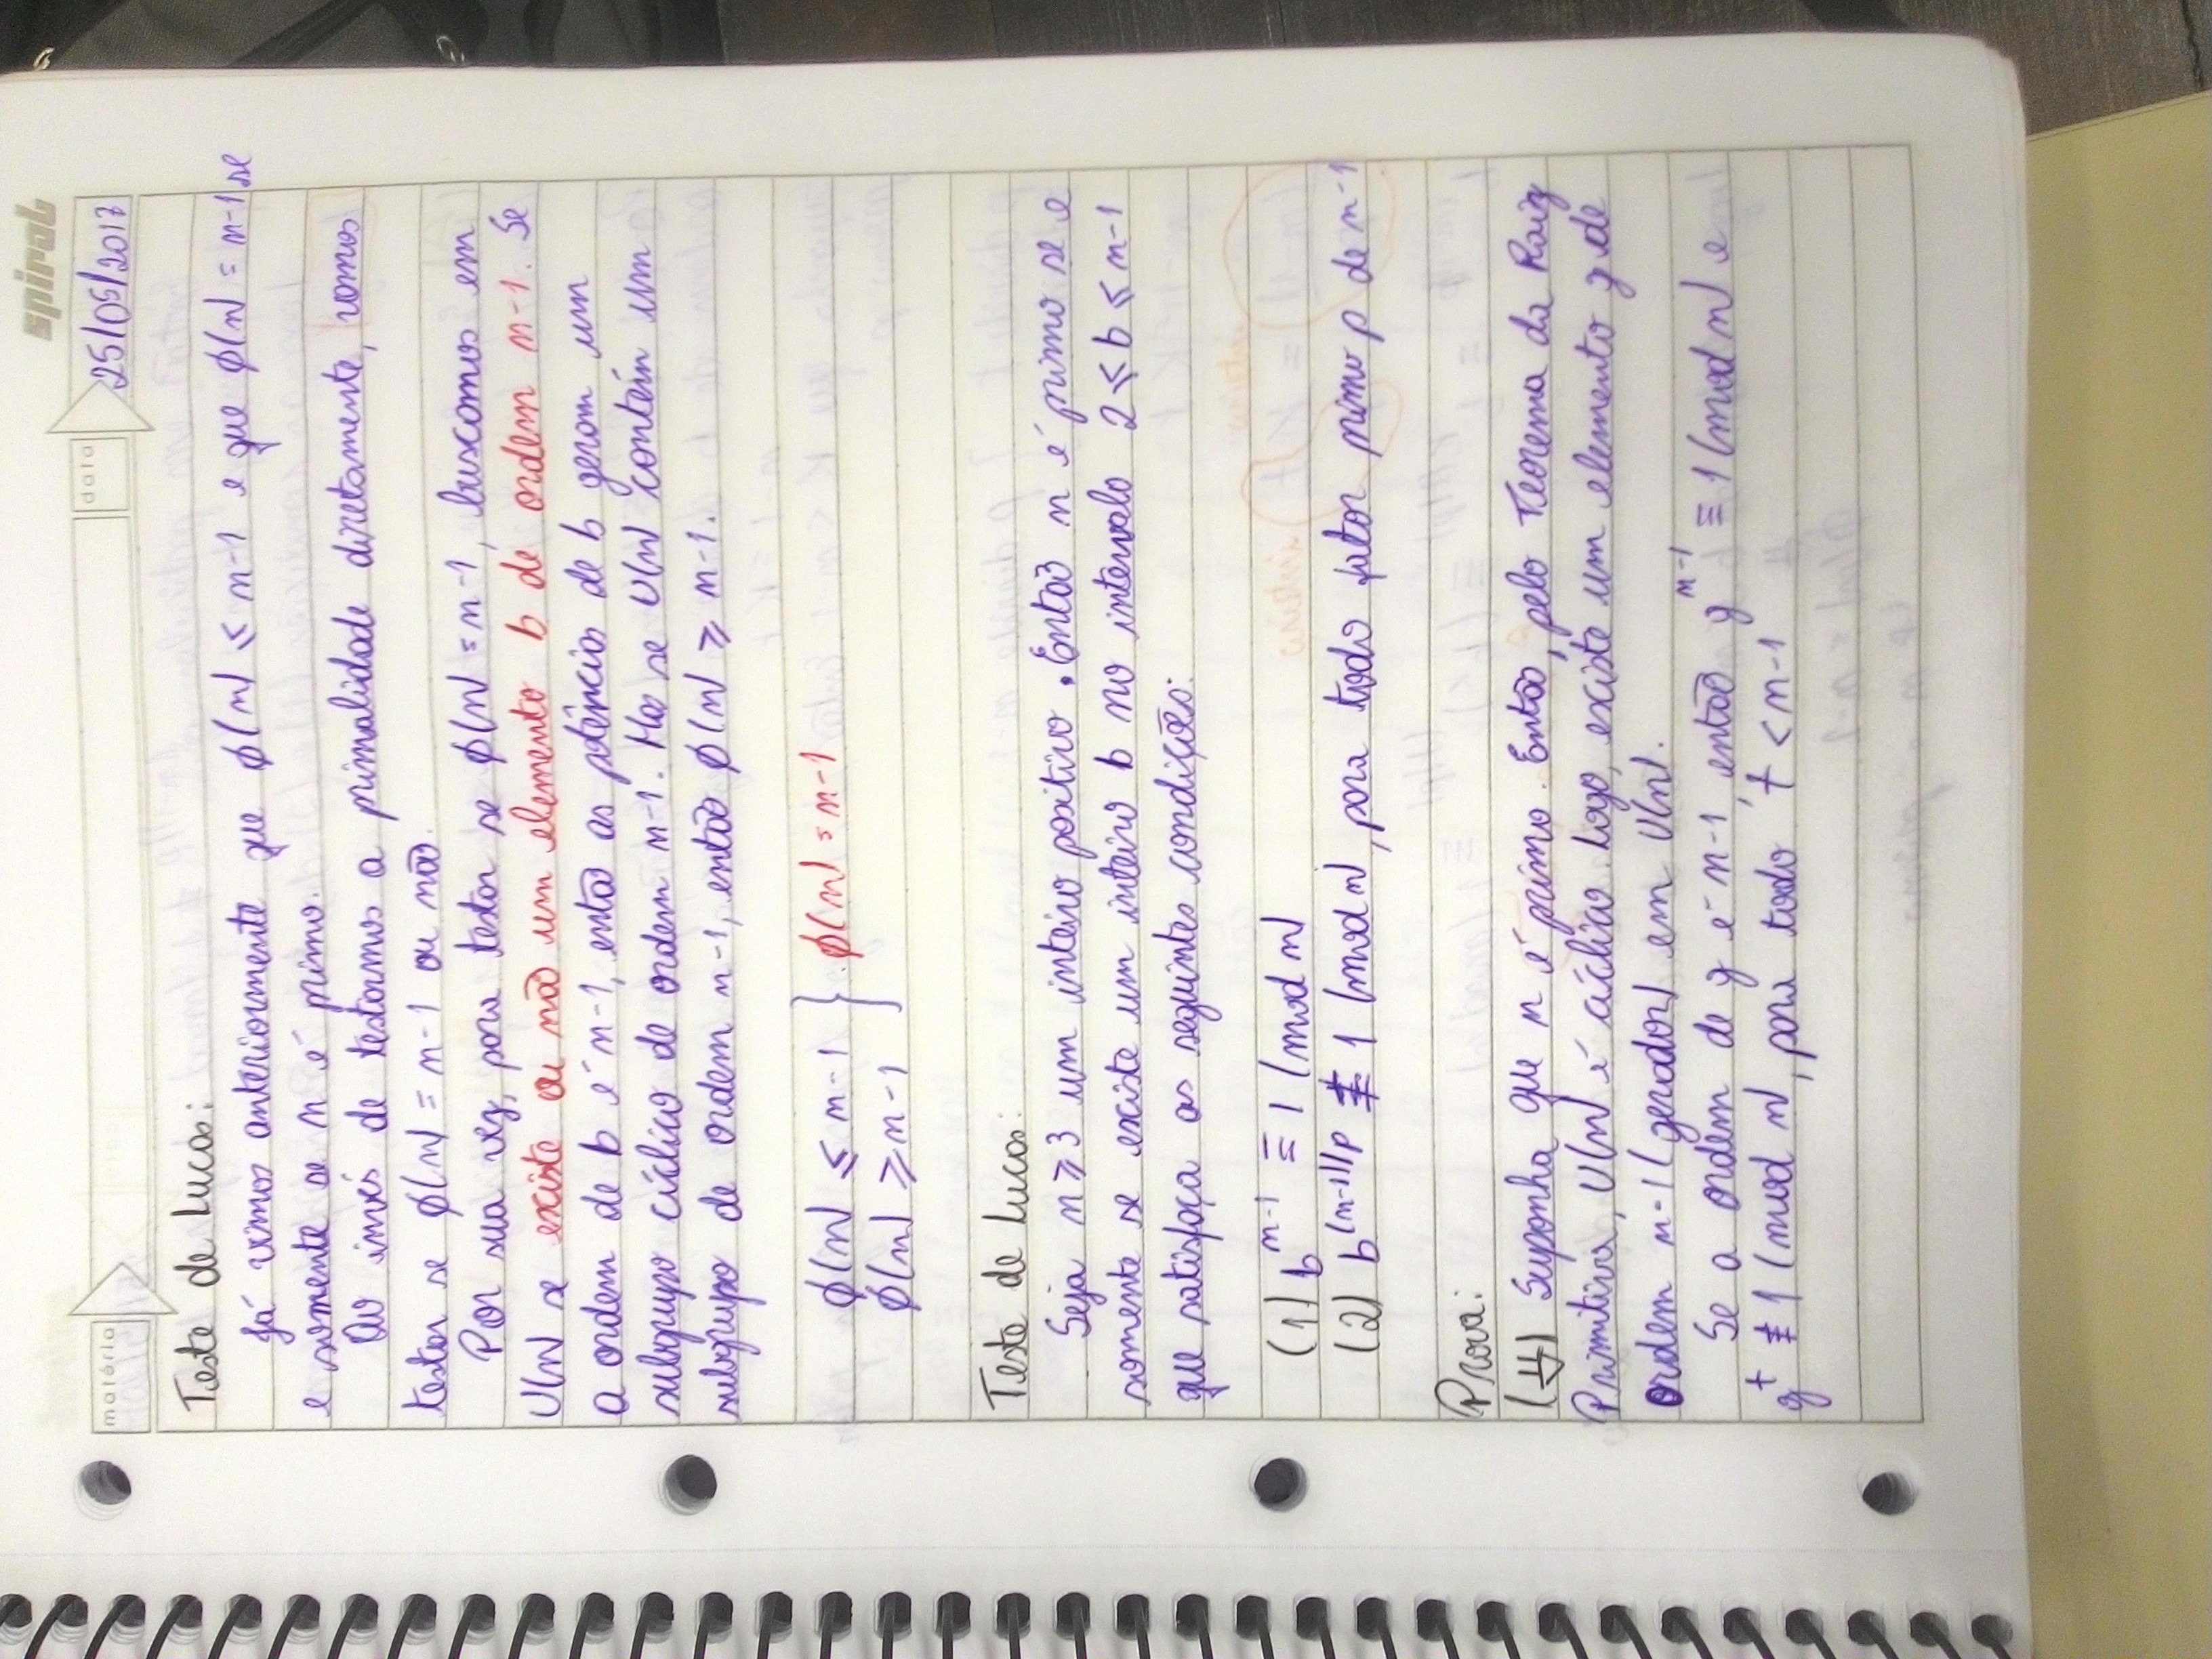 spiral
matéria
data
25/05/2017
Teste de Lucas:
Já vimos anteriormente que φ(n) ≤ n-1 e que φ(n) = n-1 se
e somente se n é primo.
Ao invés de testarmos a primalidade diretamente, vamos
testar se φ(n) = n-1 ou não.
Por sua vez, para testar se φ(n) = n-1, buscamos em
U(n) se existe ou não um elemento b de ordem n-1. Se
a ordem de b é n-1, então as potências de b geram um
subgrupo cíclico de ordem n-1. Mas se U(n) contém um
subgrupo de ordem n-1, então φ(n) ≥ n-1.
φ(n) ≤ n-1 } φ(n) = n-1
φ(n) ≥ n-1
Teste de Lucas:
Seja n ≥ 3 um inteiro positivo. Então n é primo se e
somente se existe um inteiro b no intervalo 2 ≤ b ≤ n-1
que satisfaça as seguintes condições:
(1) b^{n-1} ≡ 1 (mod n)
(2) b^{(n-1)/p} ≢ 1 (mod n), para todo fator primo p de n-1
Prova:
(⇓) Suponha que n é primo. Então, pelo Teorema da Raiz
Primitiva, U(n) é cíclico. Logo, existe um elemento g de
ordem n-1 (gerador) em U(n).
Se a ordem de g é n-1, então g^{n-1} ≡ 1 (mod n) e
g^t ≢ 1 (mod n), para todo t < n-1